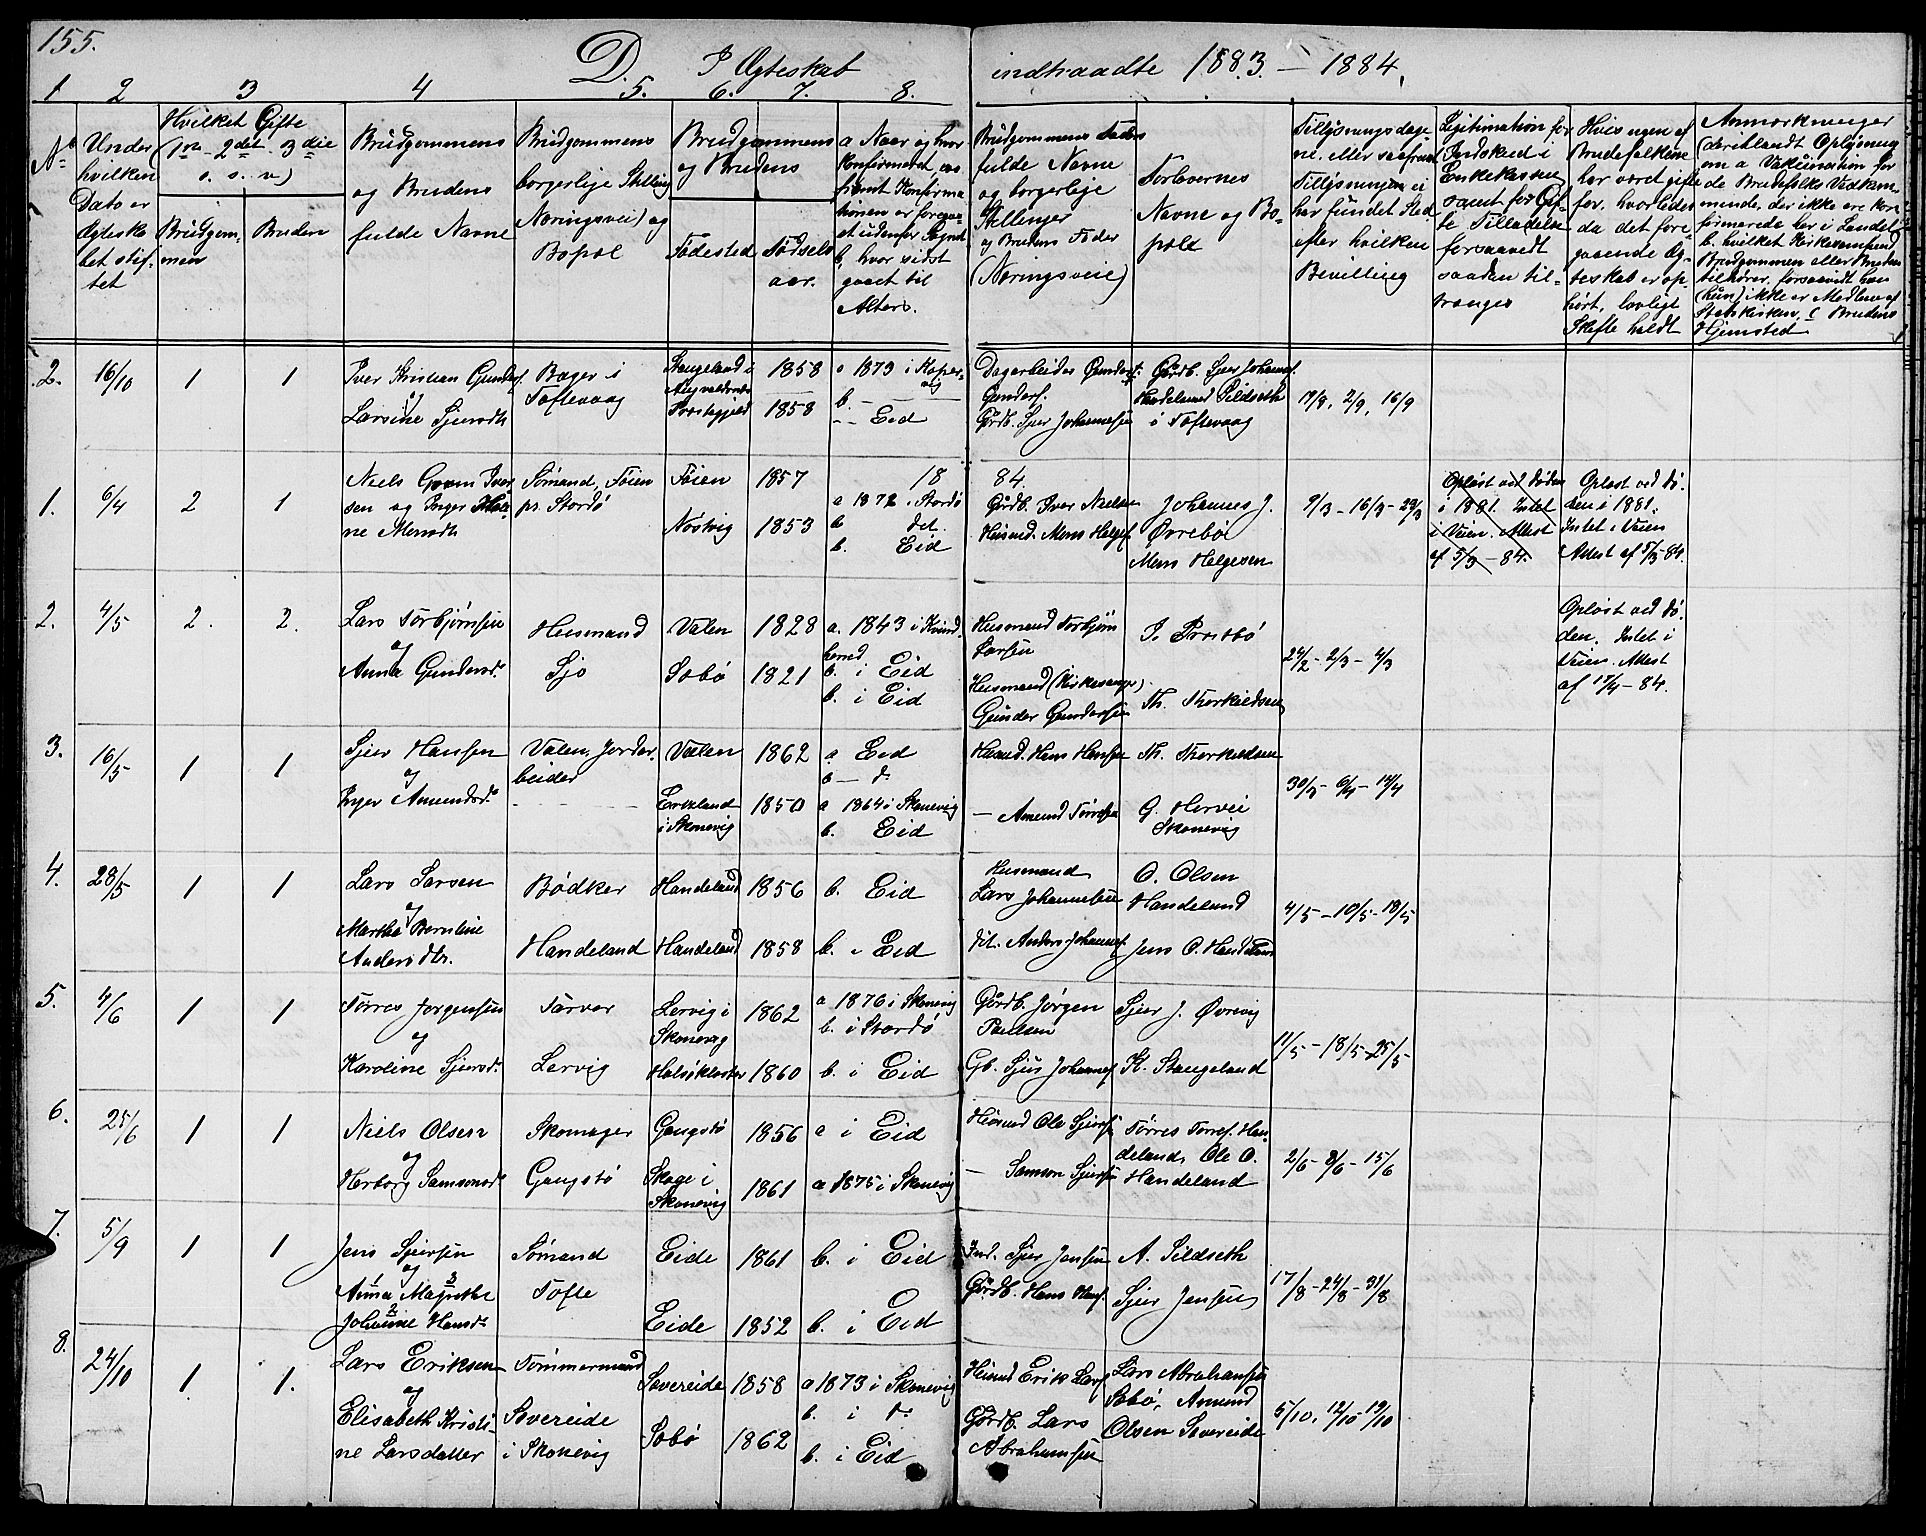 155.
D. I Ægteskab indtraadte 1883. – 1884.
1 2 3 4 5. 6. 7. 8.
No
Under hvilken Dato er Ægteskabet stiftet
Hvilket Gifte (1ste – 2det – 3die o. s. v.)
Brudgommen
Bruden
Brudgommens og Brudens fulde Navne
Brudgommens borgerlige Stilling (Næringsvei) og Bopæl
Brudgommens og Brudens
Fødested
Fødselsaar.
a Naar og hvor konfirmeret, saafremt Konfirmationen er foregaaet udenfor Sognet
b, hvor sidst gaaet til Alters.
Brudgommens Faders fulde Navne og borgerlige Stillinger og Brudens Fader (Næringsveie)
Forlovernes Navne og Bopæle
Tillysningsdagene, eller saafremt Tillysningen ei har fundet Sted efter hvilken Bevilling
Legitimation for Indskud i Enkekassen samt for Gifte Tilladelse forsaavidt saadan tiltrænges
Hvis nogen af Brudefolkene har været gifte før, hvorledes da det foregaaende Ægteskab er ophørt, lovligt Skifte holdt
Anmærkninger (deriblandt Oplysning om a Vakcination for de Brudefolks Vedkommende, der ikke ere konfirmerede her i Landet b. hvilket Kirkesamfund Brudgommen eller Bruden tilhører, forsaavidt han (hun) ikke er Medlem af Statskirken, c Brudens Hjemsted
2. 16/10 1 1
Iver Kristian Gunders. og Larsine Sjursdtr
Bager i Toftevaag
Stangeland i Augvaldsnes Præstegjeld
1858
1858
a 1873 i Kopervig
b. — — — Eid
Dagarbeider Gunder Gunders.
Gårdb. Sjur Johannesen
Gårdb. Sjur Johannes. Handeland Sildseth i Toftevaag
19/8, 2/9, 16/9
1884.
1. 6/4 2 1
Niels Iversen og Inger Monsdtr
Sømand, Føien pr. Stordø
Føien
Nøstvig
1857
1853
a 1872 i Stordø
b det.
b. Eid
Gårdb. Iver Nielsen
Husmd. Mons Helges.
Johannes J. Øvrebø
Mons Helgesen
9/3 – 16/3 – 23/3
Opløst ved Døden i 1881. Intet i Veien. Attest af 5/3 – 84.
Opløst ved døden i 1881. Intet i Veien Attest af 5/3 84.
2. 4/5 2. 2.
Lars Torbjørnsen og Anna Gundersd.
Husmand Sjo
Valen
Sobø
1828
1821
a. 1843 i Kvindherred
b. i Eid
b. i Eid
Husmand Torbjørn Larsen
Husmand (Kirkesanger) Gunder Gundersen
J. Prestbø
Th. Thorkildsen
24/2 – 2/3 – 4/3
Opløst ved døden. Intet i Veien. Attest af 17/4 – 84.
3. 16/5 1 1
Sjur Hansen og Inger Amundsd.
Valen, Jordarbeider
Valen
i Skonevig
1862
1850
a Eid
b — d.
a 1864 i Skonevig
b. Eid
Husmd. Hans Hansen
— Amund Tørresen
Th. Thorkildsen
G. Hervei Skonevig
30/3 – 6/4 – 14/4
4. 28/5 1 1
Lars Larsen og Martha Berntine Andersdtr.
Bødker
Handeland
Handeland
Handeland
1856
1858
b. Eid
b. i Eid
Husmand Lars Johannesen
dit. Anders Johannes.
O. Olsen Handeland
Jens O. Handeland
4/5 – 10/5 – 18/5
5. 4/6 1 1
Tørres Jørgensen og Karoline Sjursd.
Farver
Lervig
Lervig i Skonevig
Halsøkloster
1862
1860
a 1876 i Skonevig
b. i Stordø
b. i Eid
Gårdb. Jørgen Paulsen
Gb. Sjur Johannes.
Sjur J. Ørevig
K. Stangeland
11/5 – 18/5 – 25/5
6. 25/6 1 1
Niels Olsen og Herborg Samsonsd.
Skomager
Gangstø
Gangstø
Skage i Skonevig
1856
1861
a i Eid
a 1875 i Skonevig
Husmd Ole Sjursen
— Samson Sjursen
Tørres Tørres. Handeland, Ole O. Handeland
2/6 – 8/6 – 15/6
7. 5/9 1 1
Jens Sjursen og Anna Magrethe Johanne Hansd.
Sømand
Tofte
Eide
Eide
1861
1852
b. i Eid
b. i Eid
Ind. Sjur Jensen
Gårdb. Hans Hans.
A. Sildseth
Sjur Jensen
17/8 – 24/8 – 31/8
8. 24/10 1. 1.
Lars Eriksen og Elisabeth Kristine Larsdatter
Tømmermand
Sævereide i Skonevig
Sævereide
Sobø
1858
1862
a 1873 i Skonevig
b. i d.
b. i Eid
Husmd Erik Lars.
Gårdb. Lars Abrahamsen
Lars Abrahamsen Sobø, Amund Olsen Sævereide
5/10, 12/10 19/10